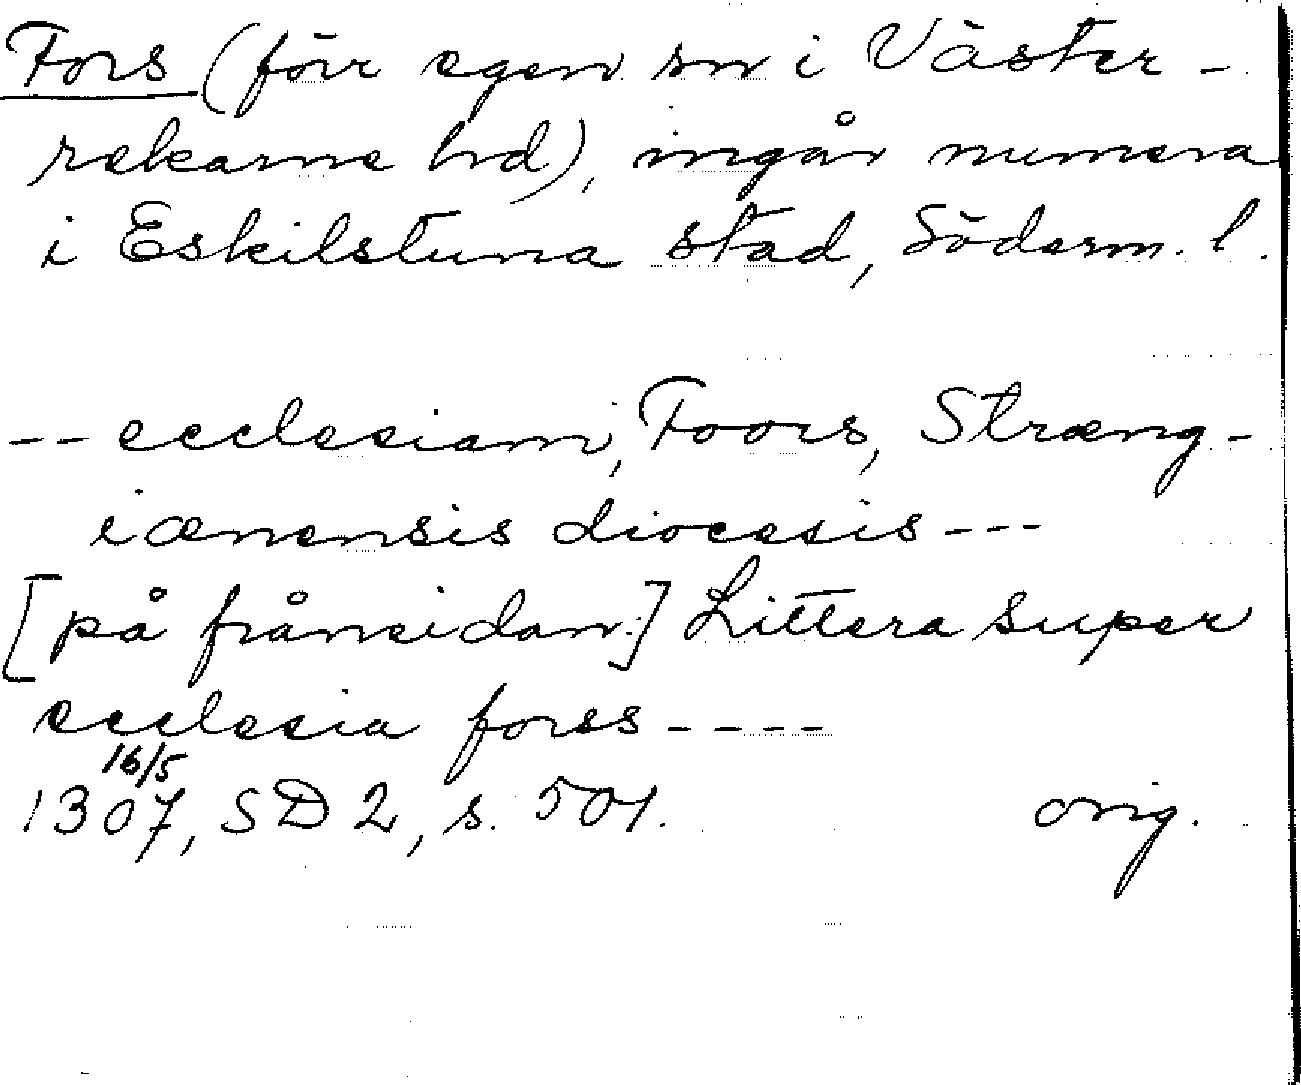 Fors (förr egen sn i Väster-
rekarne hrd), ingår numera
i Eskilstuna stad, Söderm. l.
-- ecclesiam, Foors, Stræng-
iænensis diocesis ---
[på frånsidan:] Littera super
ecclesia forss ----
16/5
1307, SD 2, s. 501. orig.